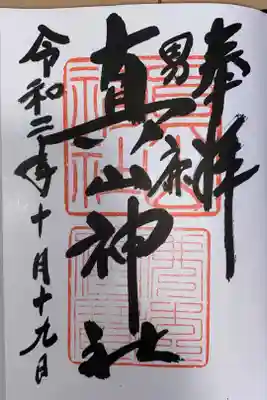 奉拝
男鹿
真山神社
令和二年十月十九日